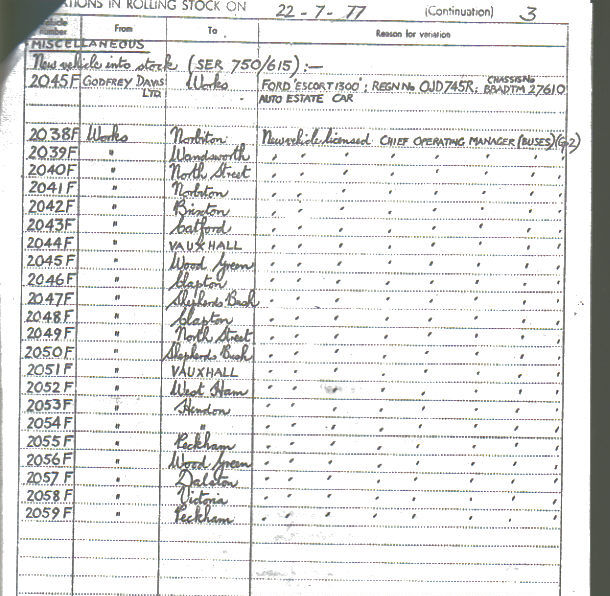 ATIONS IN ROLLING STOCK ON 22-7-77 (Continuation) 3
Vehicle number From To Reason for variation
MISCELLANEOUS
New vehicle into stock (SER 750/615):—
2045F GODFREY DAVIS LTD. Works FORD 'ESCORT 1300'; REGN No OJD745R; CHASSIS No BBADTM 27610
AUTO ESTATE CAR
2038F Works Norbiton New vehicle licensed CHIEF OPERATING MANAGER (BUSES) (Gp2)
2039F " Wandsworth " " " " " " "
2040F " North Street " " " " " " "
2041F " Norbiton " " " " " " "
2042F " Brixton " " " " " " "
2043F " Catford " " " " " " "
2044F " VAUXHALL " " " " " " "
2045F " Wood Green " " " " " " "
2046F " Clapton " " " " " " "
2047F " Shepherds Bush " " " " " " "
2048F " Clapton " " " " " " "
2049F " North Street " " " " " " "
2050F " Shepherds Bush " " " " " " "
2051F " VAUXHALL " " " " " " "
2052F " West Ham " " " " " " "
2053F " Hendon " " " " " " "
2054F " " " " " " " " "
2055F " Peckham " " " " " " "
2056F " Wood Green " " " " " " "
2057F " Dalston " " " " " " "
2058F " Victoria " " " " " " "
2059F " Peckham " " " " " " "